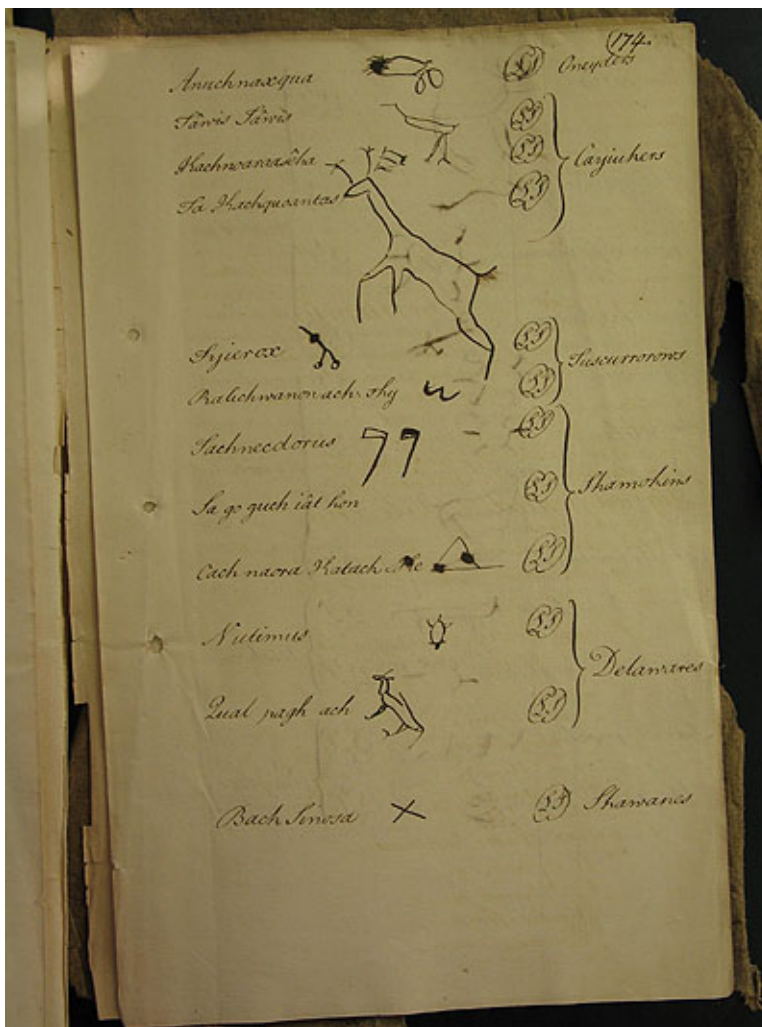 174
Anuchnaxqua LS Oneyders
Tâwis Tâwis LS
Kachnoaraasèha LS Cayiukers
Ta Kachquontas LS
Syierox LS
Tuscurrororos
Ralichwanonach shy LS
Tachnecdorus LS
Sa go guch iât hon LS Shamokins
Cach naora Katach LS
Nutimus LS
Delawares
Qual pagh ach LS
Bach Sinosa LS Shawanes